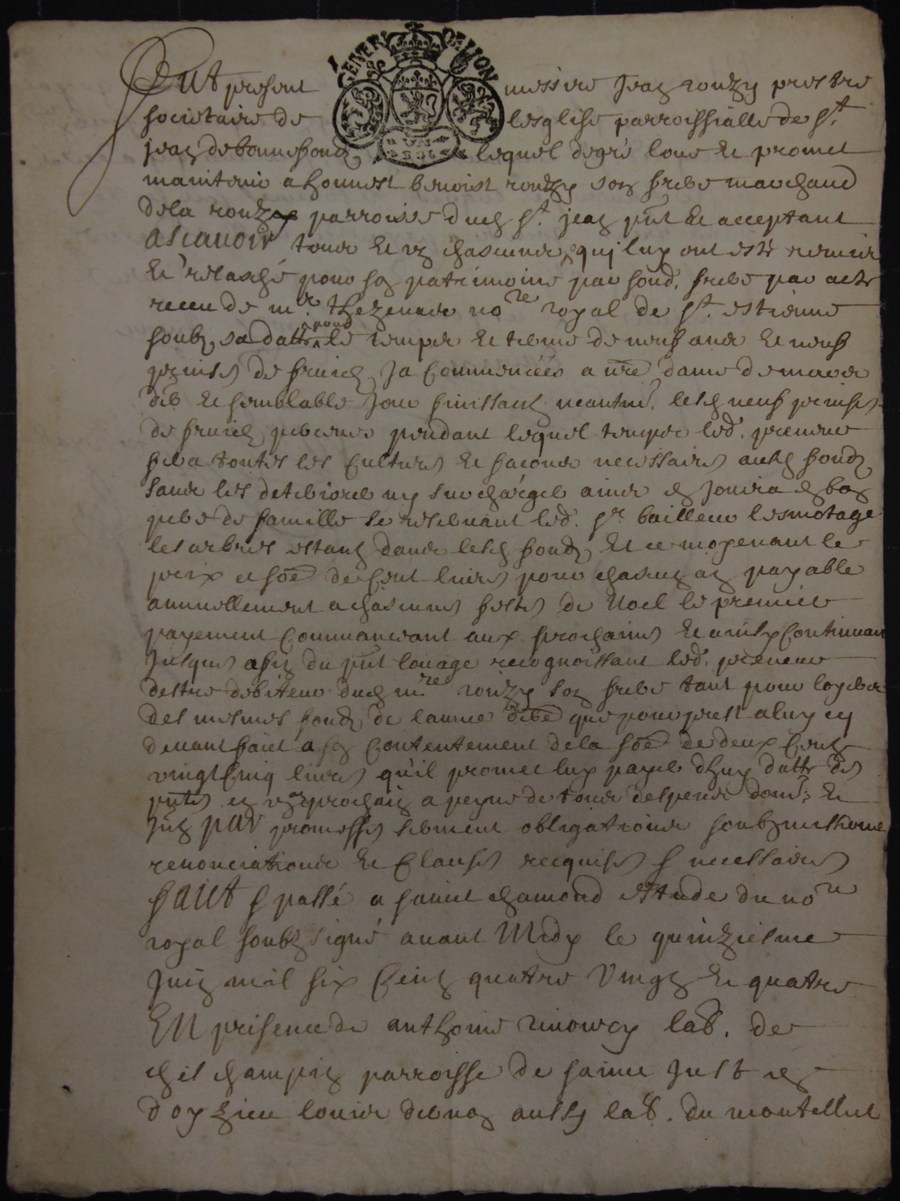 GENER DE LION
Fut present messire Jean rouzy prestre
societaire de lesglise parroissialle de st
jean de bonnefond lequel degré loue et promet
maintenir a honnest benoist rouzy son frere marchand
de la rouzy parroisse dud st jean pnt et acceptant
ascavoir tous et un chascuns qui luy ont esté remis
et relasché pour son patrimoine par sond. frere par acte
receu de mr thezenas nore royal de st estienne
soubz sa datte pour le temps et terme de neuf ans et neuf
prinses de fruictz Ja commencées a nre dame de mars
der et semblable jour finissant neantm. lesd neuf prinses
de fruictz perceues pendant lequel temps led. preneur
fera toutes les cultures et facons necessaires ausd fondz
sans les deteriorer ny surcharger ains en jouira en bon
pere de famille se reservant led. sr bailleur lesmotage
les arbres estantz dans lesd fondz Et ce moyenant le
prix et some de cent livres pour chascun an payable
annuellement a chascunes festes de Noel le premier
payement commancant aux prochaines et ainsy continuant
jusques a fin du pnt louage recognoissant led. preneur
destre debiteur dud mre rouzy son frere tant pour loyers
des mesmes fondz de lannee dere que pour prest a luy cy
devant faict a son contentement de la some de deux centz
vingt cinq livres qu'il promet luy payer dhuy datte des
pntes en un an prochain a peyne de tous despens dom. et
par promesses serment obligations soubzmissions
renonciations et clauses requises & necessaires
faict & passé a sainct chamond estude du nore
royal soubzsigné avant Midy le quinziesme
Juin mil six centz quatre vingtz et quatre
En presence de anthoine lab. de
parroisse de sainct Just en
doyzieu louis aussy lab. du